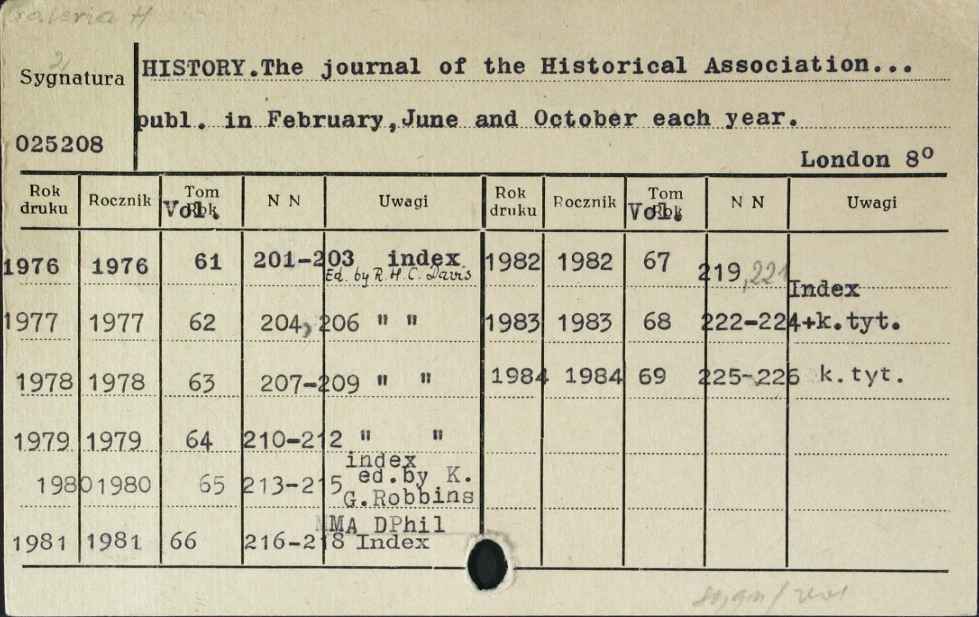 Galeria H
Sygnatura
025208
HISTORY.The journal of the Historical Association...
publ. in February,June and October each year.
London 8º
Rok druku Rocznik Tom Vol. N N Uwagi Rok druku Rocznik Tom Vol. N N Uwagi
1976 1976 61 201-203 index 1982 1982 67 219,221 Index
Ed. by R. H. C. Davis
1977 1977 62 204, 206 " " 1983 1983 68 222-224+k.tyt.
1978 1978 63 207-209 " " 1984 1984 69 225-226 k.tyt.
1979 1979 64 210-212 " "
index
1980 1980 65 213-215 ed.by K.
G.Robbins
MA DPhil
1981 1981 66 216-218 Index